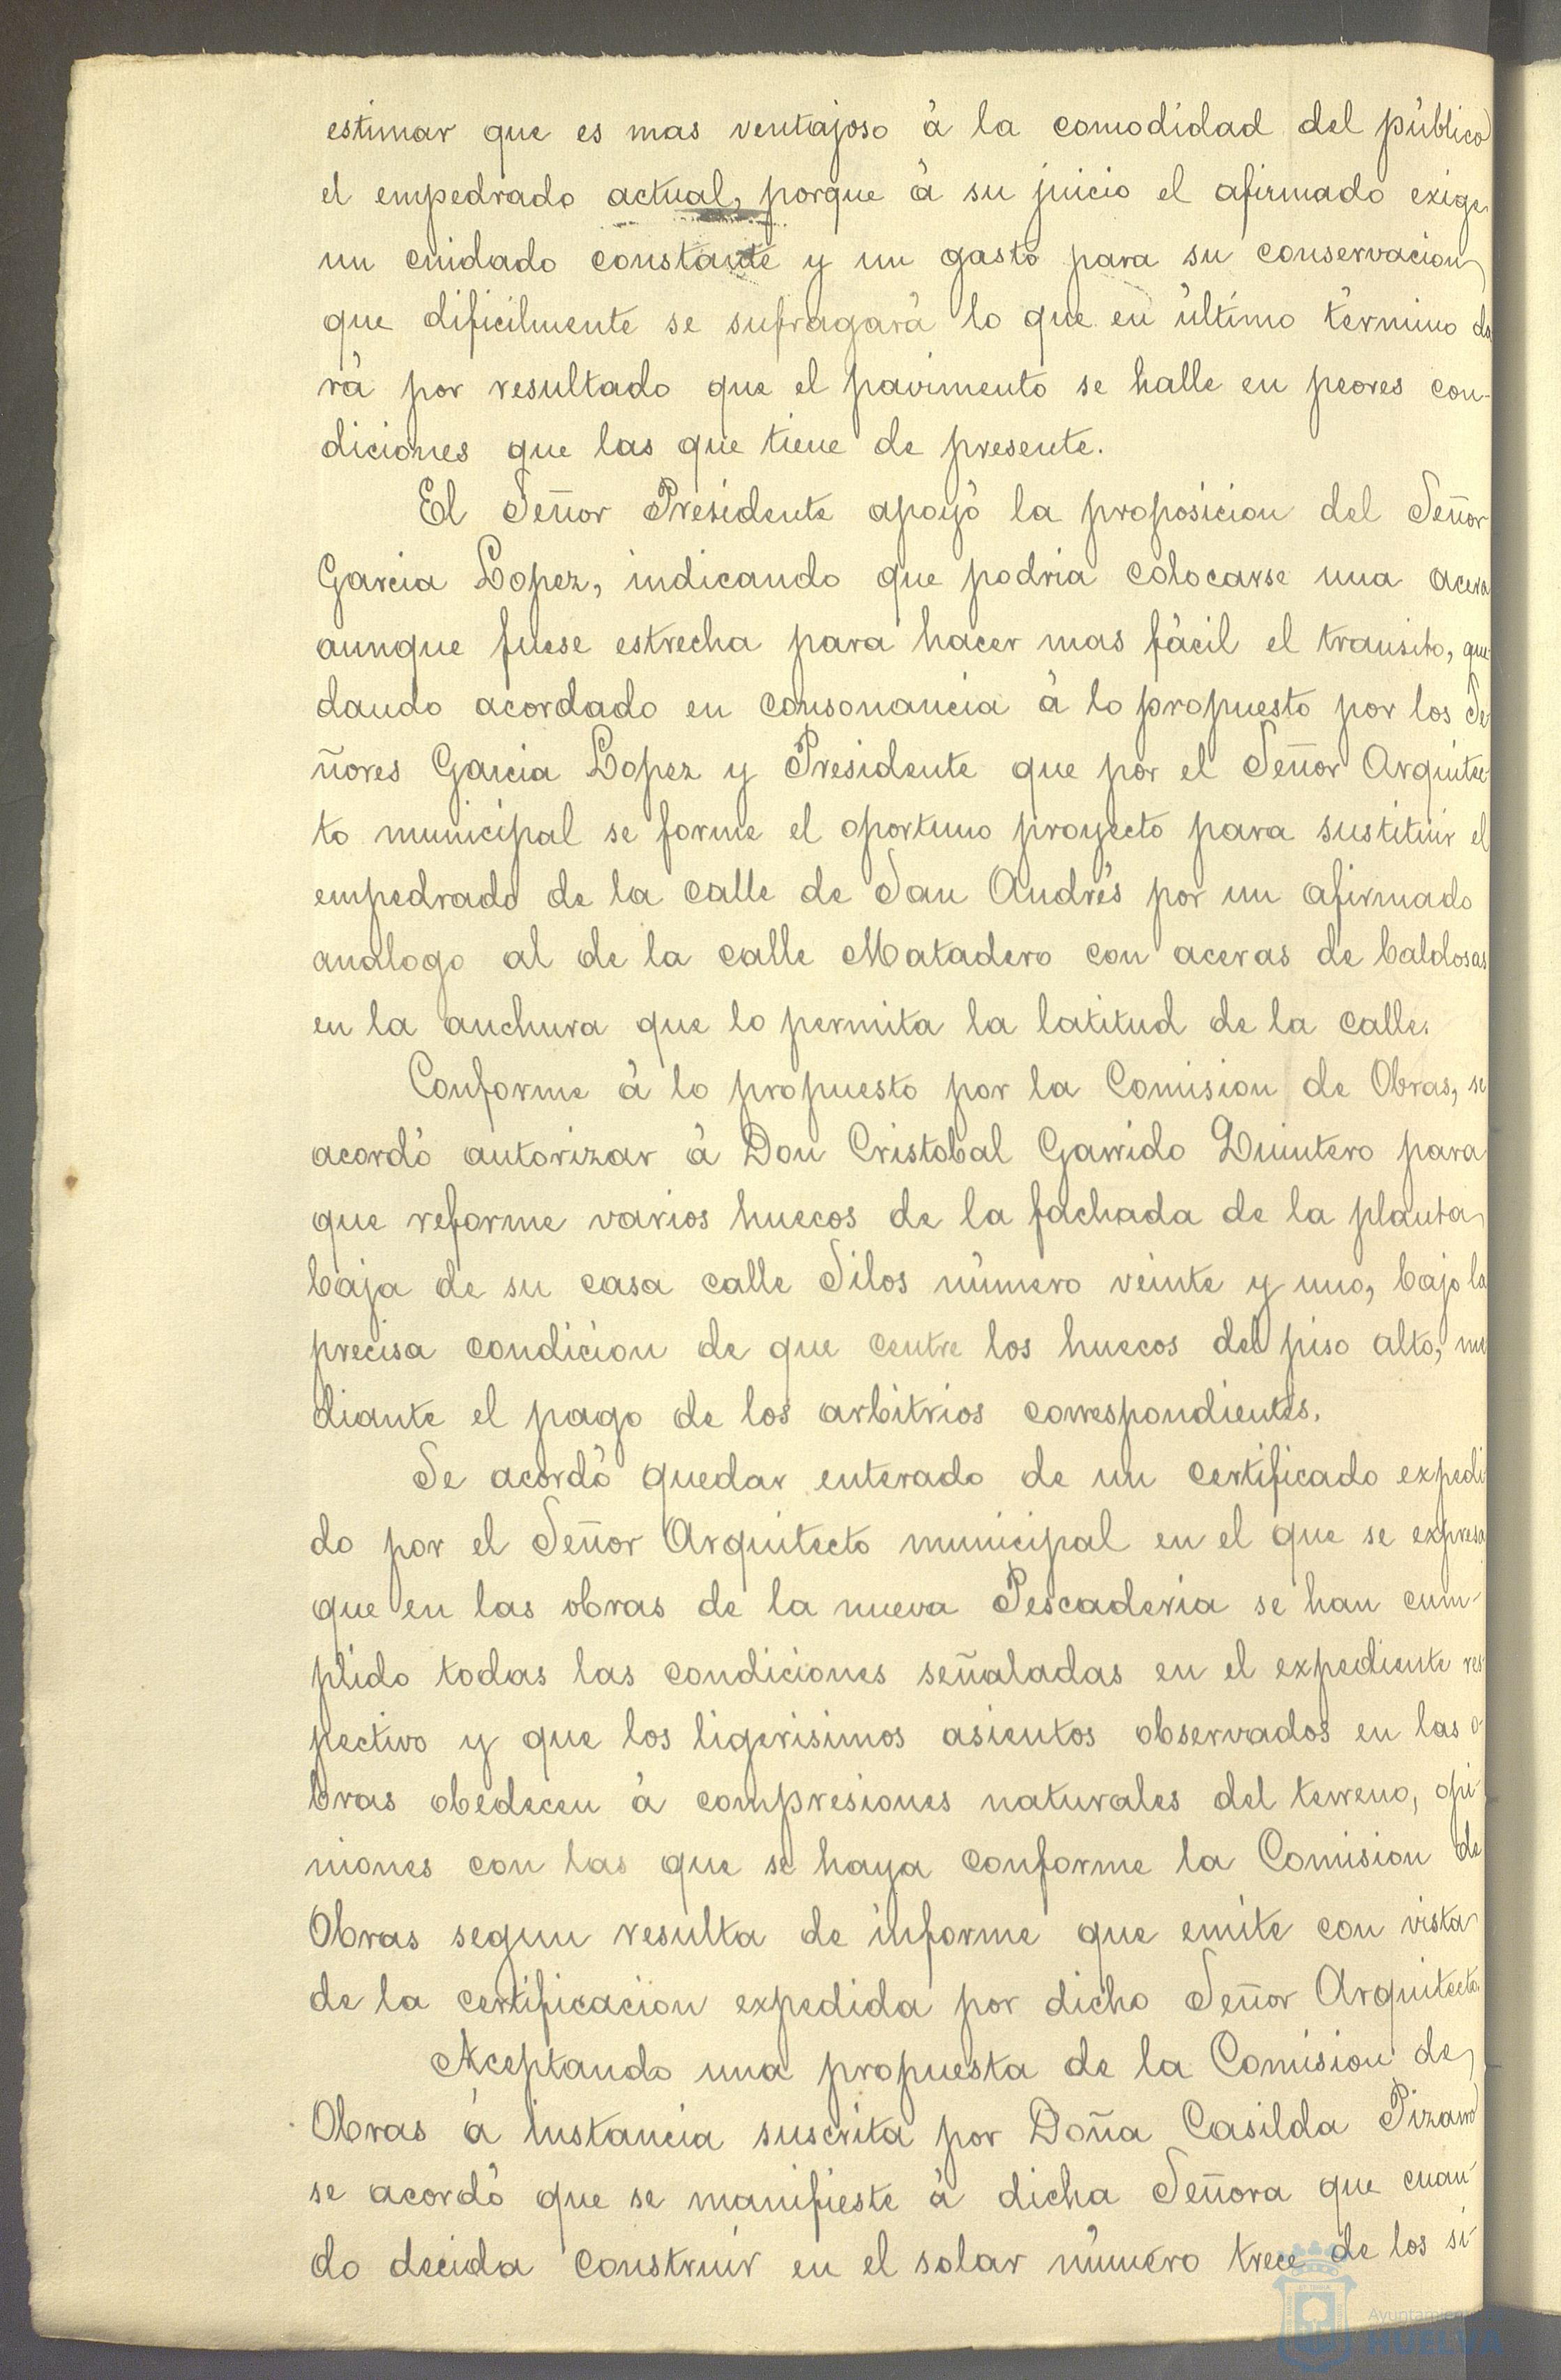 estimar que es mas ventajoso à la comodidad del público
el empedrado actual, porque à su juicio el afirmado exige
un cuidado constante y un gasto para su conservacion
que dificilmente se sufragarà lo que en ùltimo tèrmino da
rà por resultado que el pavimento se halle en peores con-
diciones que las que tiene de presente.
El Señor Presidente apoyò la proposicion del Señor
Garcia Lopez, indicando que podria colocarse una acera
aunque fuese estrecha para hacer mas fàcil el transito, que
dando acordado en consonancia à lo propuesto por los Se
ñores Garcia Lopez y Presidente que por el Señor Arquitec-
to municipal se forme el oportuno proyecto para sustituir el
empedrado de la calle de San Andrés por un afirmado
analogo al de la calle Matadero con aceras de baldosas
en la anchura que lo permita la latitud de la calle.
Conforme à lo propuesto por la Comision de Obras, se
acordò autorizar à Don Cristobal Garrido Quintero para
que reforme varios huecos de la fachada de la planta
baja de su casa calle Silos nùmero veinte y uno, bajo la
precisa condicion de que centre los huecos del piso alto, me
diante el pago de los arbitrios correspondientes.
Se acordò quedar enterado de un certificado expedi
do por el Señor Arquitecto municipal en el que se expresa
que en las obras de la nueva Pescaderia se han cum-
plido todas las condiciones señaladas en el expediente res-
pectivo y que los ligerisimos asientos observados en las o-
bras obedecen à compresiones naturales del terreno, opi-
niones con las que se haya conforme la Comision de
Obras segun resulta de informe que emite con vista
de la certificacion expedida por dicho Señor Arquitecto.
Aceptando una propuesta de la Comision de
Obras à instancia suscrita por Doña Casilda Pizarro
se acordò que se manifieste à dicha Señora que cuan-
do decida construir en el solar nùmero trece de los si-
Ayuntamiento
HUELVA